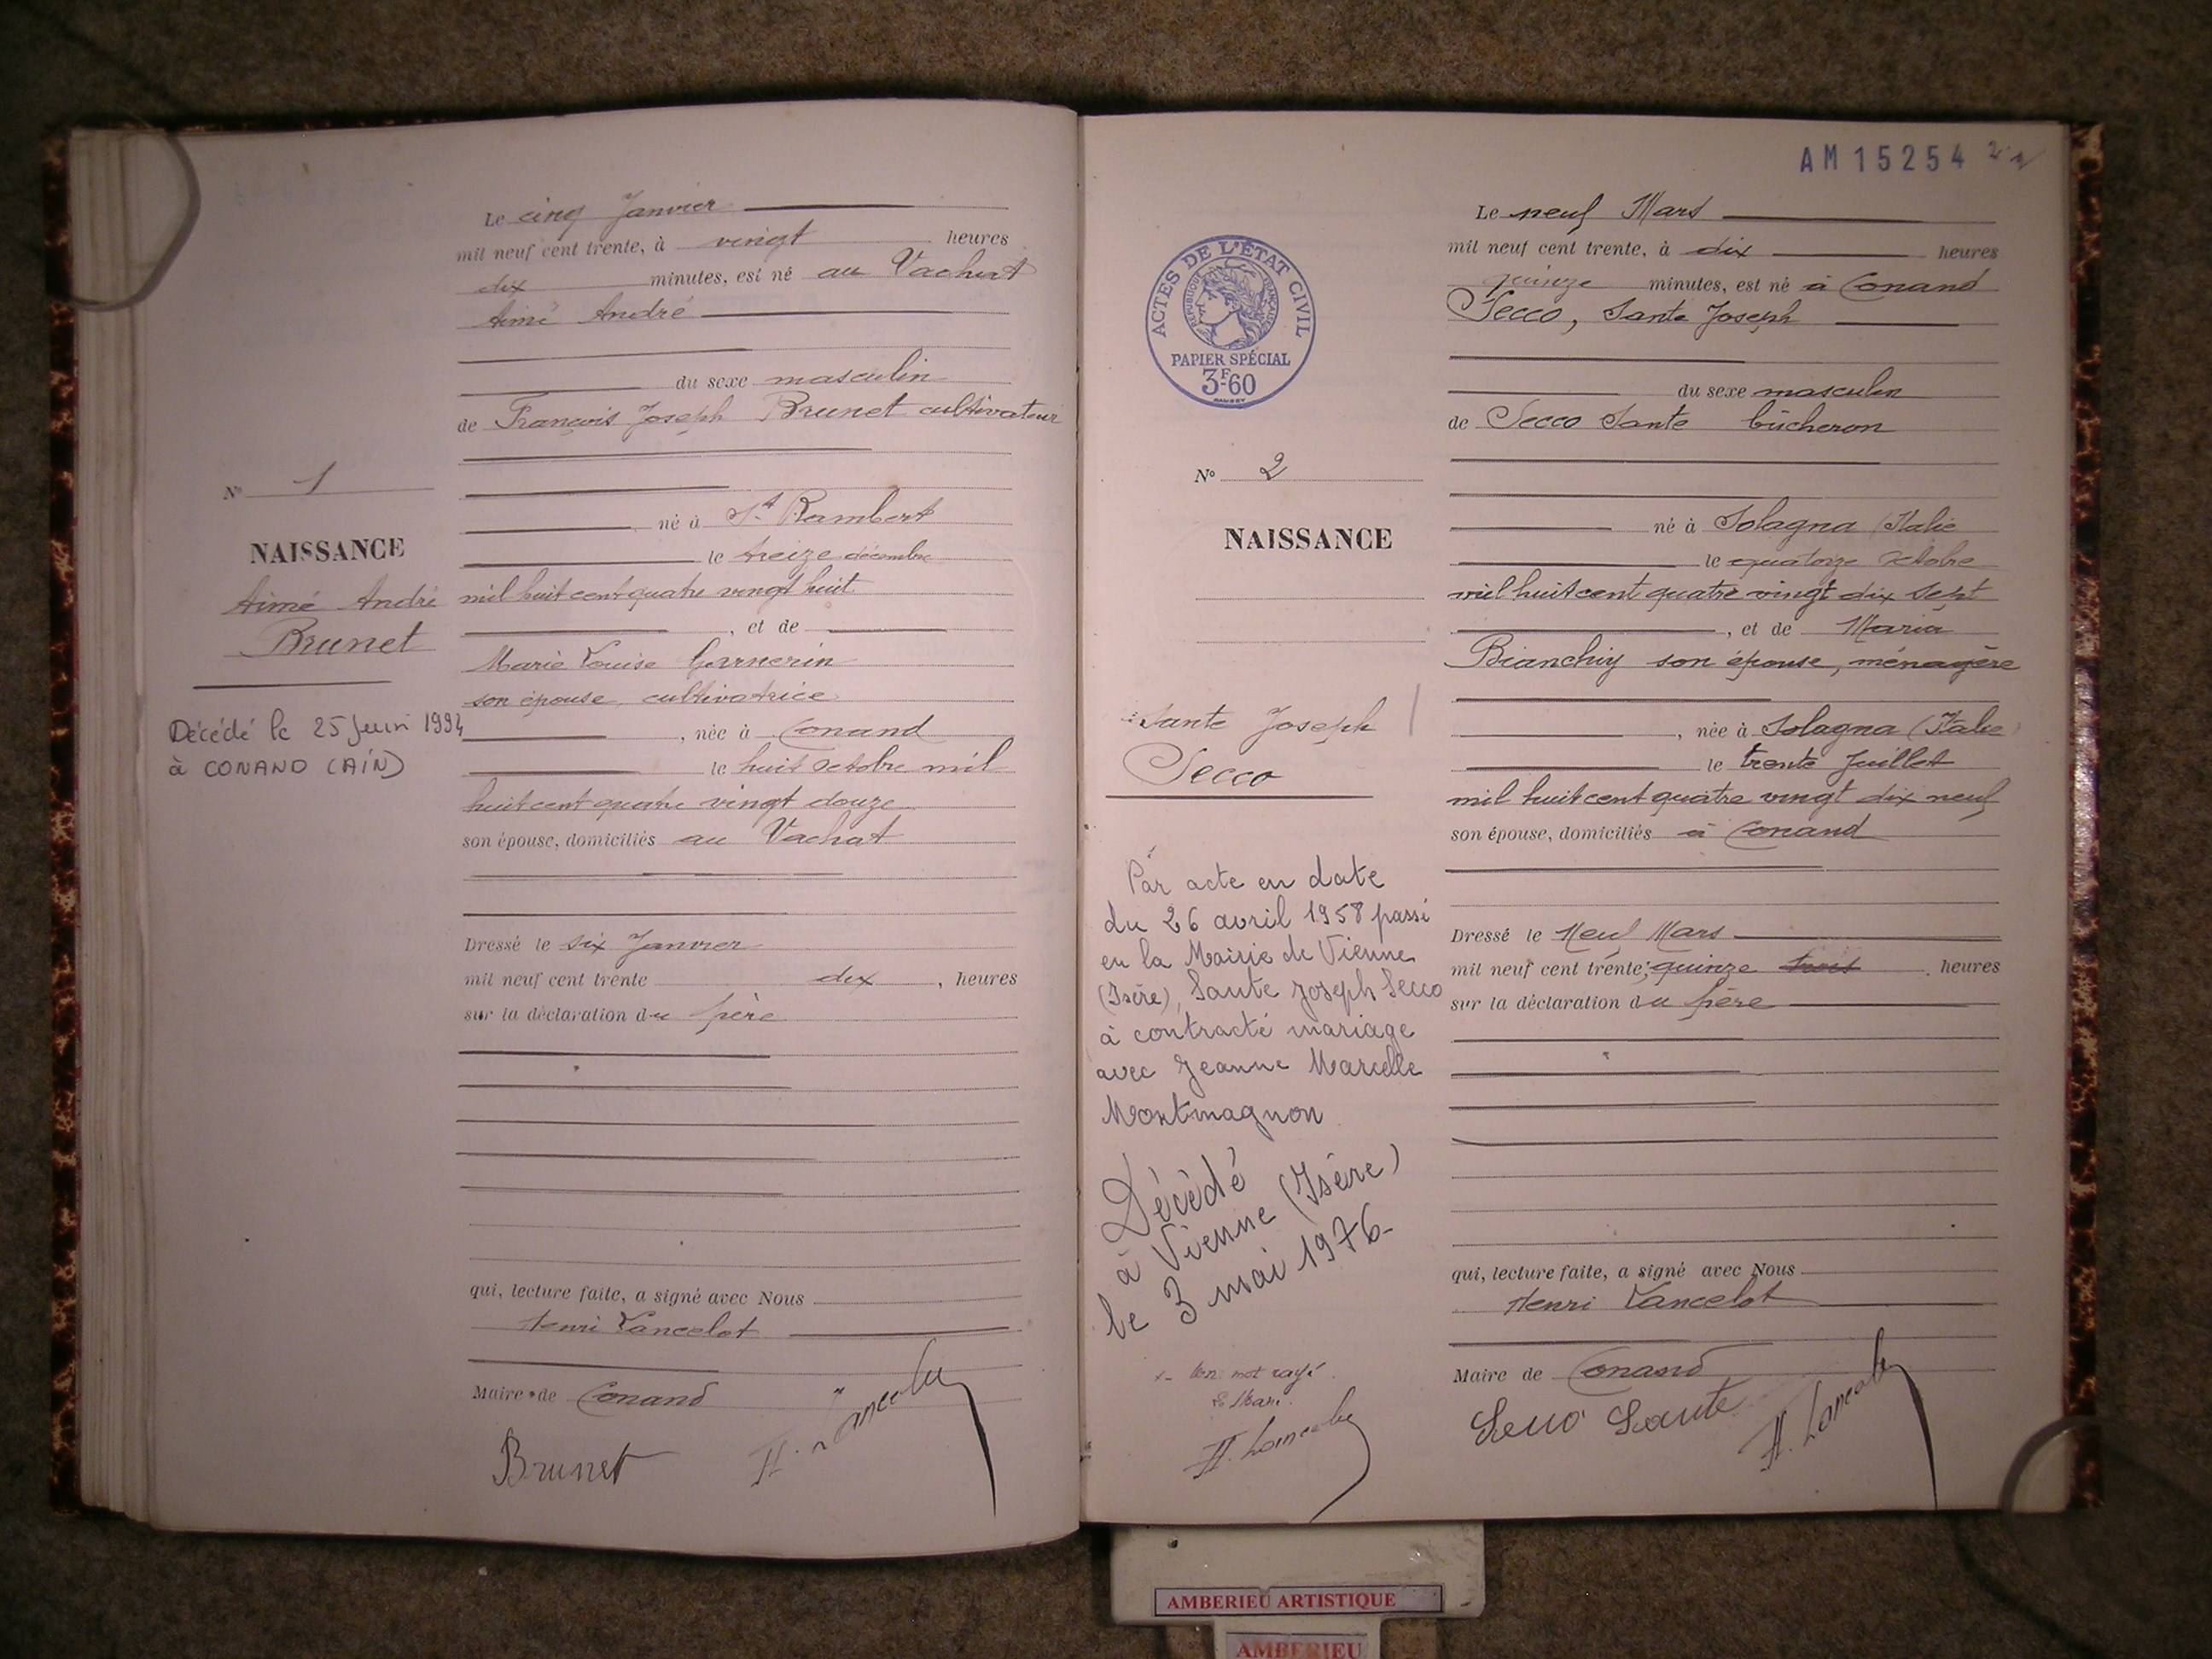 Le cinq Janvier
mil neuf cent trente, à vingt heures
dix minutes, est né au Vachat
Aimé André
du sexe masculin
de François Joseph Brunet cultivateur
né à St Rambert
le treize décembre
mil huit cent quatre vingt huit
, et de
Marie Louise Garnerin
son épouse, cultivatrice
, née à Conand
le huit Octobre mil
huit cent quatre vingt douze
son épouse, domiciliés au Vachat
Dressé le six Janvier
mil neuf cent trente dix , heures
sur la déclaration du père
qui, lecture faite, a signé avec Nous
Henri Lancelot
Maire de Conand
Brunet
No 1
NAISSANCE
Aimé André
Brunet
Décédé le 25 Juin 1994
à CONAND (AIN)
AM 15254
ACTES DE L'ÉTAT CIVIL
RÉPUBLIQUE FRANÇAISE
PAPIER SPÉCIAL
3F.60
No 2
NAISSANCE
Sante Joseph
Secco
Par acte en date
du 26 avril 1958 passé
en la Mairie de Vienne
(Isère), Sante Joseph Secco
à contracté mariage
avec Jeanne Marcelle
Montmagnon
Décédé
à Vienne (Isère)
le 3 mai 1976-
mot rayé
H. Lancelot
Le neuf Mars
mil neuf cent trente, à dix heures
quinze minutes, est né à Conand
Secco, Sante Joseph
du sexe masculin
de Secco Sante bûcheron
né à Solagna (Italie
le quatorze Octobre
mil huit cent quatre vingt dix sept
, et de Maria
Bianchiy son épouse, ménagère
, née à Solagna (Italie)
le trente Juillet
mil huit cent quatre vingt dix neuf
son épouse, domiciliés à Conand
Dressé le Neuf Mars
mil neuf cent trente, quinze trois heures
sur la déclaration du père
qui, lecture faite, a signé avec Nous
Henri Lancelot
Maire de Conand
Secco Sante H. Lancelot
AMBERIEU ARTISTIQUE
AMBERIEU